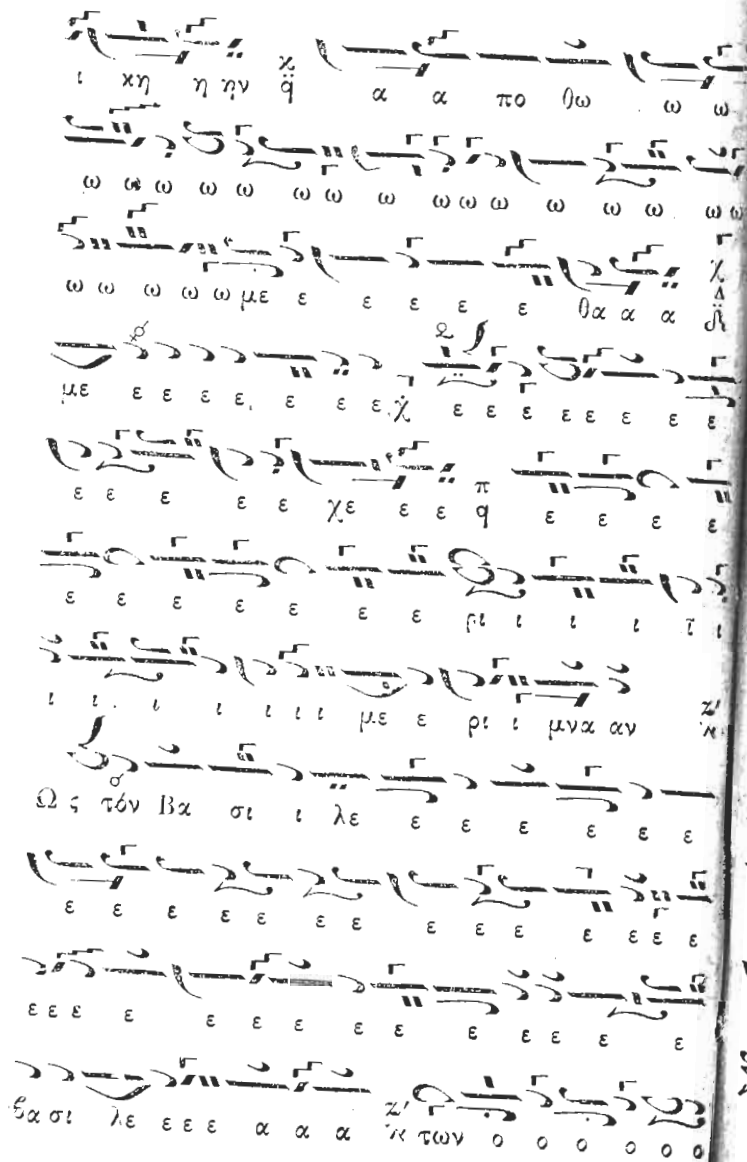 ι κη η ην α α πο θω ω ω
ω ω ω ω ω ω ω ω ω ω ω ω ω ω ω ω
ω ω ω ω ω με ε ε ε ε ε θα α α
με ε ε ε ε ε ε ε ε ε ε ε ε ε ε ε
ε ε ε ε ε χε ε ε ε ε ε ε
ε ε ε ε ε ε ε ρι ι ι ι ϊ ι
ι ι ι ι ι ι ι με ε ρι ι μνα αν
Ως τόν Βα σι ι λε ε ε ε ε ε ε
ε ε ε ε ε ε ε ε ε ε ε ε ε ε
ε ε ε ε ε ε ε ε ε ε ε ε ε
βα σι λε ε ε ε α α α των ο ο ο ο ο ο